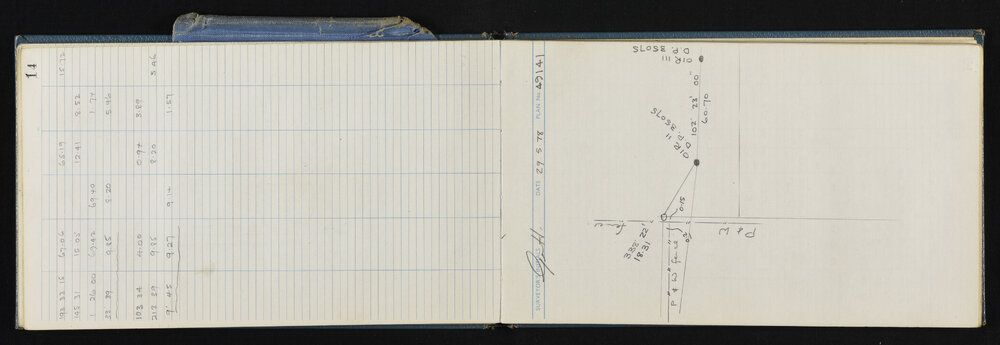 14
192 33 15 67.06 65.19 15.72
145 31 15.05 12.41 8.52
1 26 00 69.42 69.40 1.74
33 39 9.85 8.20 5.46
103 34 4.00 0.94 3.89
212 39 9.85 8.20 5.46
9° 45 9.27 9.14 1.57
SURVEYOR'S
DATE 29 5 78
PLAN No. 49141
OIR 111
D.P. 35075
102° 23' 00"
60.70
OIR 11
D.P. 35075
0.15
fence
338° 22'
18.31
P & W fence
02
P & W